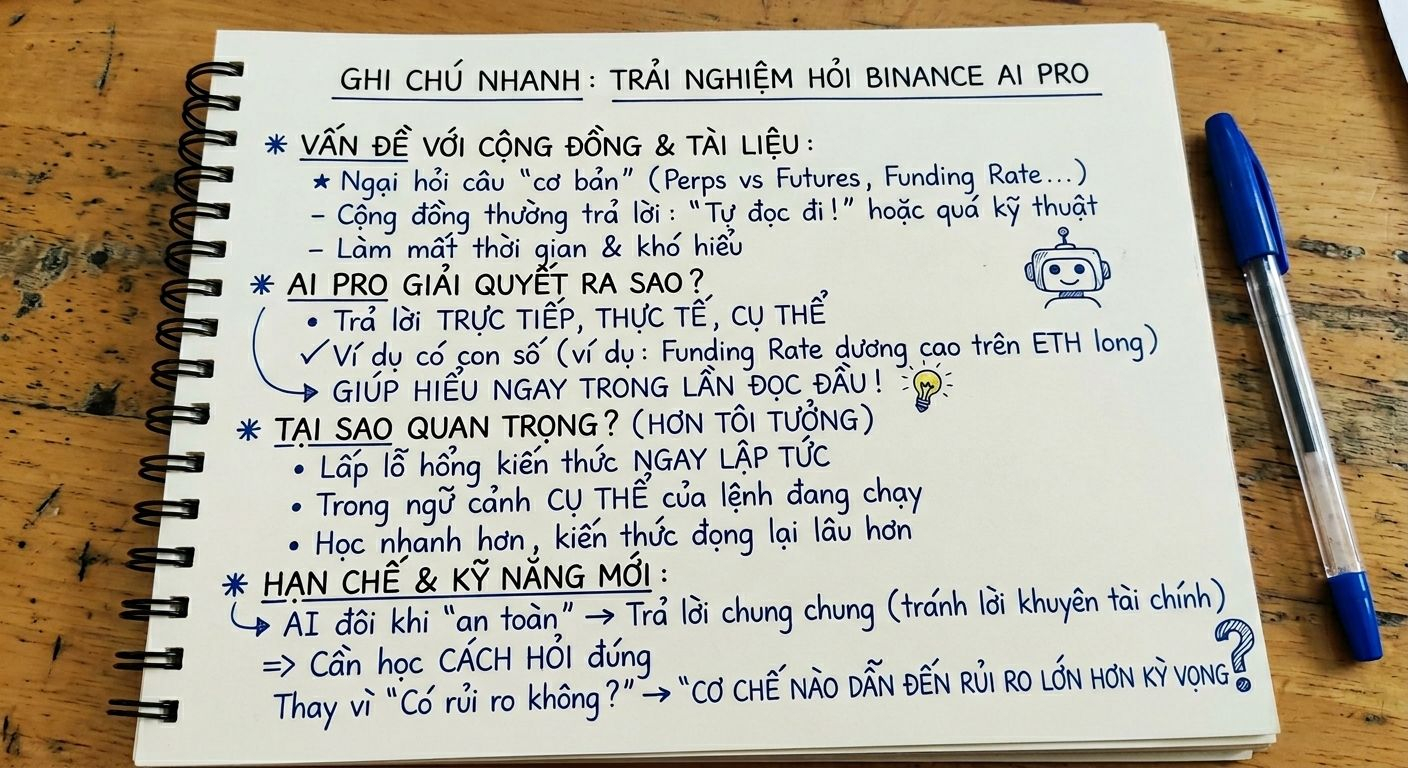 GHI CHÚ NHANH: TRẢI NGHIỆM HỎI BINANCE AI PRO
* VẤN ĐỀ VỚI CỘNG ĐỒNG & TÀI LIỆU:
★ Ngại hỏi câu "cơ bản" (Perps vs Futures, Funding Rate...)
- Cộng đồng thường trả lời: "Tự đọc đi!" hoặc quá kỹ thuật
- Làm mất thời gian & khó hiểu
* AI PRO GIẢI QUYẾT RA SAO?
• Trả lời TRỰC TIẾP, THỰC TẾ, CỤ THỂ
✓ Ví dụ có con số (ví dụ: Funding Rate dương cao trên ETH long)
→ GIÚP HIỂU NGAY TRONG LẦN ĐỌC ĐẦU!
* TẠI SAO QUAN TRỌNG? (HƠN TÔI TƯỞNG)
• Lấp lỗ hổng kiến thức NGAY LẬP TỨC
• Trong ngữ cảnh CỤ THỂ của lệnh đang chạy
• Học nhanh hơn, kiến thức đọng lại lâu hơn
* HẠN CHẾ & KỸ NĂNG MỚI:
→ AI đôi khi "an toàn" → Trả lời chung chung (tránh lời khuyên tài chính)
=> Cần học CÁCH HỎI đúng
Thay vì "Có rủi ro không?" → "CƠ CHẾ NÀO DẪN ĐẾN RỦI RO LỚN HƠN KỲ VỌNG?